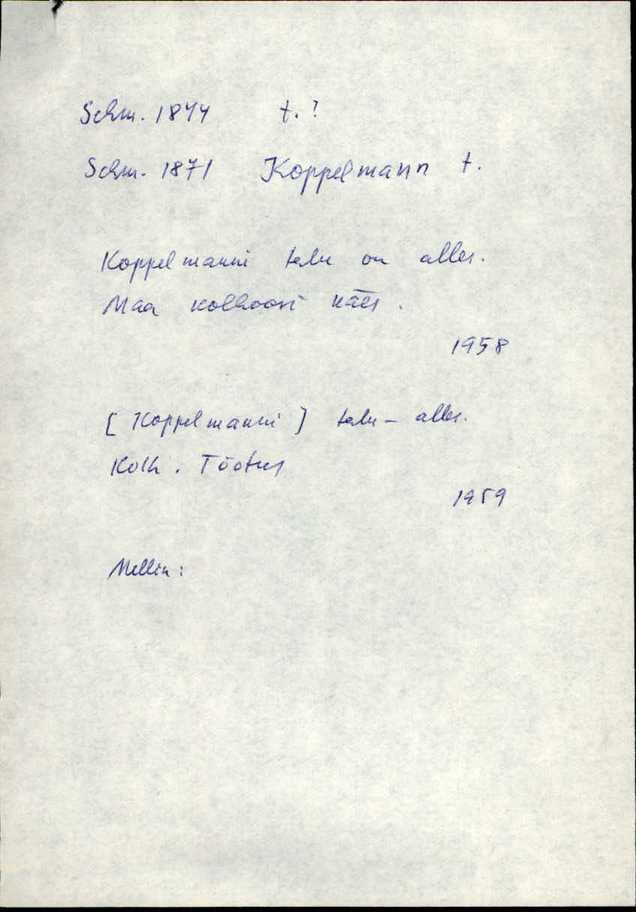 Schm. 1844 t. ?
Schm. 1871 Koppelmann t.
Koppelmanni talu on alles.
Maa kolhoosi käes.
1958
[Koppelmanni] talu – alles.
Kolh. Tõotus
1959
Mellin: